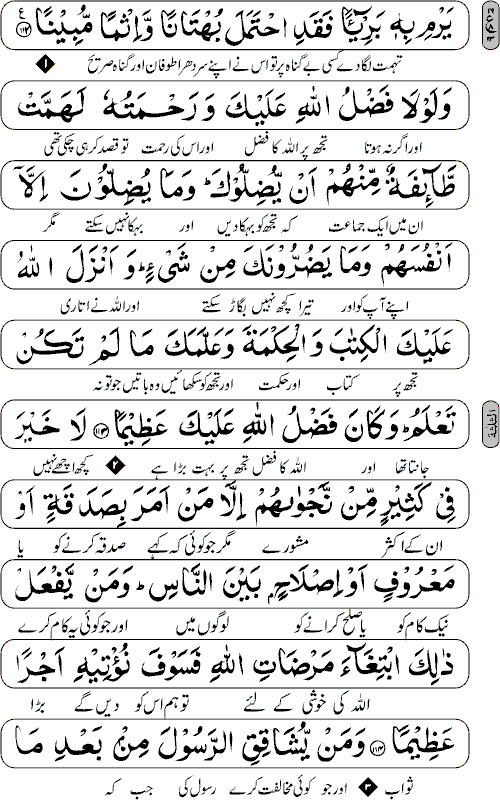 يَرْمِ بِهٖ بَرِيْٓـًٔا فَقَدِ احْتَمَلَ بُهْتَانًا وَّاِثْمًا مُّبِيْنًا ﴿۱۱۲﴾ ع
تہمت لگا دے کسی بے گناہ پر تو اس نے اپنے سر دھرا طوفان اور گناہ صریح ۱
وَلَوْلَا فَضْلُ اللّٰهِ عَلَيْكَ وَرَحْمَتُهٗ لَهَمَّتْ
اور اگر نہ ہوتا تجھ پر اللہ کا فضل اور اس کی رحمت تو قصد کر ہی چکی تھی
طَّآئِفَةٌ مِّنْهُمْ اَنْ يُّضِلُّوْكَ ؕ وَمَا يُضِلُّوْنَ اِلَّآ
ان میں ایک جماعت کہ تجھ کو بہکا دیں اور بہکا نہیں سکتے مگر
اَنْفُسَهُمْ وَمَا يَضُرُّوْنَكَ مِنْ شَیْءٍ ؕ وَاَنْزَلَ اللّٰهُ
اپنے آپ کو اور تیرا کچھ نہیں بگاڑ سکتے اور اللہ نے اتاری
عَلَيْكَ الْكِتٰبَ وَالْحِكْمَةَ وَعَلَّمَكَ مَا لَمْ تَكُنْ
تجھ پر کتاب اور حکمت اور تجھ کو سکھائیں وہ باتیں جو تو نہ
تَعْلَمُ ؕ وَكَانَ فَضْلُ اللّٰهِ عَلَيْكَ عَظِيْمًا ﴿۱۱۳﴾ لَا خَيْرَ
جانتا تھا اور اللہ کا فضل تجھ پر بہت بڑا ہے ۲ کچھ اچھے نہیں
فِیْ كَثِيْرٍ مِّنْ نَّجْوٰىهُمْ اِلَّا مَنْ اَمَرَ بِصَدَقَةٍ اَوْ
ان کے اکثر مشورے مگر جو کوئی کہ کہے صدقہ کرنے کو یا
مَعْرُوْفٍ اَوْ اِصْلَاحٍۭ بَيْنَ النَّاسِ ؕ وَمَنْ يَّفْعَلْ
نیک کام کو یا صلح کرانے کو لوگوں میں اور جو کوئی یہ کام کرے
ذٰلِكَ ابْتِغَآءَ مَرْضَاتِ اللّٰهِ فَسَوْفَ نُؤْتِيْهِ اَجْرًا
اللہ کی خوشی کے لئے تو ہم اس کو دیں گے بڑا
عَظِيْمًا ﴿۱۱۴﴾ وَمَنْ يُّشَاقِقِ الرَّسُوْلَ مِنْۢ بَعْدِ مَا
ثواب ۳ اور جو کوئی مخالفت کرے رسول کی جب کہ